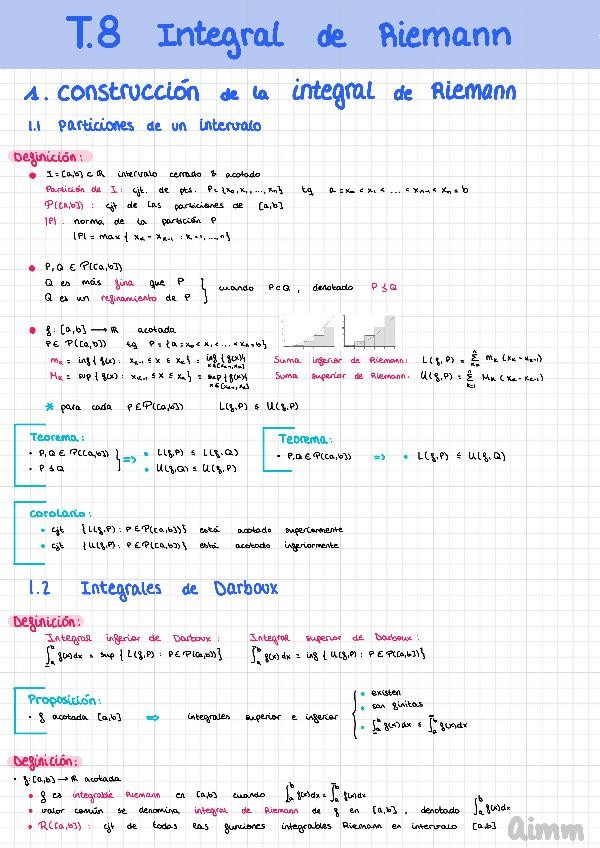 T.8 Integral de Riemann
1. construcción de la integral de Riemann
1.1 Particiones de un intervalo
Definición:
• I = [a,b] ⊂ ℝ intervalo cerrado & acotado
Partición de I: cjt. de pts. P = {x₀, x₁, ..., xₙ} tq a = x₀ < x₁ < ... < xₙ₋₁ < xₙ = b
𝒫([a,b]) : cjt de las particiones de [a,b]
|P| : norma de la partición P
|P| = max { xₖ - xₖ₋₁ : k = 1, ..., n }
• P, Q ∈ 𝒫([a,b])
Q es más fina que P
Q es un refinamiento de P } cuando P ⊂ Q , denotado P ≤ Q
• f: [a,b] → ℝ acotada
P ∈ 𝒫([a,b]) tq P = {a = x₀ < x₁ < ... < xₙ = b}
mₖ = inf { f(x) : xₖ₋₁ ≤ x ≤ xₖ } = inf { f(x) } x∈[xₖ₋₁, xₖ] Suma inferior de Riemann: L(f,P) = Σ mₖ (xₖ - xₖ₋₁)
Mₖ = sup { f(x) : xₖ₋₁ ≤ x ≤ xₖ } = sup { f(x) } x∈[xₖ₋₁, xₖ] Suma superior de Riemann: U(f,P) = Σ Mₖ (xₖ - xₖ₋₁)
* para cada P ∈ 𝒫([a,b]) L(f,P) ≤ U(f,P)
Teorema:
• P, Q ∈ 𝒫([a,b])
• P ≤ Q } => • L(f,P) ≤ L(f,Q)
• U(f,Q) ≤ U(f,P)
Teorema:
• P, Q ∈ 𝒫([a,b]) => • L(f,P) ≤ U(f,Q)
Corolario:
• cjt {L(f,P) : P ∈ 𝒫([a,b])} está acotado superiormente
• cjt {U(f,P) : P ∈ 𝒫([a,b])} está acotado inferiormente
1.2 Integrales de Darboux
Definición:
Integral inferior de Darboux : Integral superior de Darboux :
∫ₐᵇ f(x)dx = sup { L(f,P) : P ∈ 𝒫([a,b])} ∫ₐᵇ f(x)dx = inf { U(f,P) : P ∈ 𝒫([a,b])}
Proposición:
• f acotada [a,b] => integrales superior e inferior {
• existen
• son finitas
• ∫ₐᵇ f(x)dx ≤ ∫ₐᵇ f(x)dx
Definición:
• f: [a,b] → ℝ acotada
• f es integrable Riemann en [a,b] cuando ∫ₐᵇ f(x)dx = ∫ₐᵇ f(x)dx
• valor común se denomina integral de Riemann de f en [a,b] , denotado ∫ₐᵇ f(x)dx
• R([a,b]) : cjt de todas las funciones integrables Riemann en intervalo [a,b]
aimm